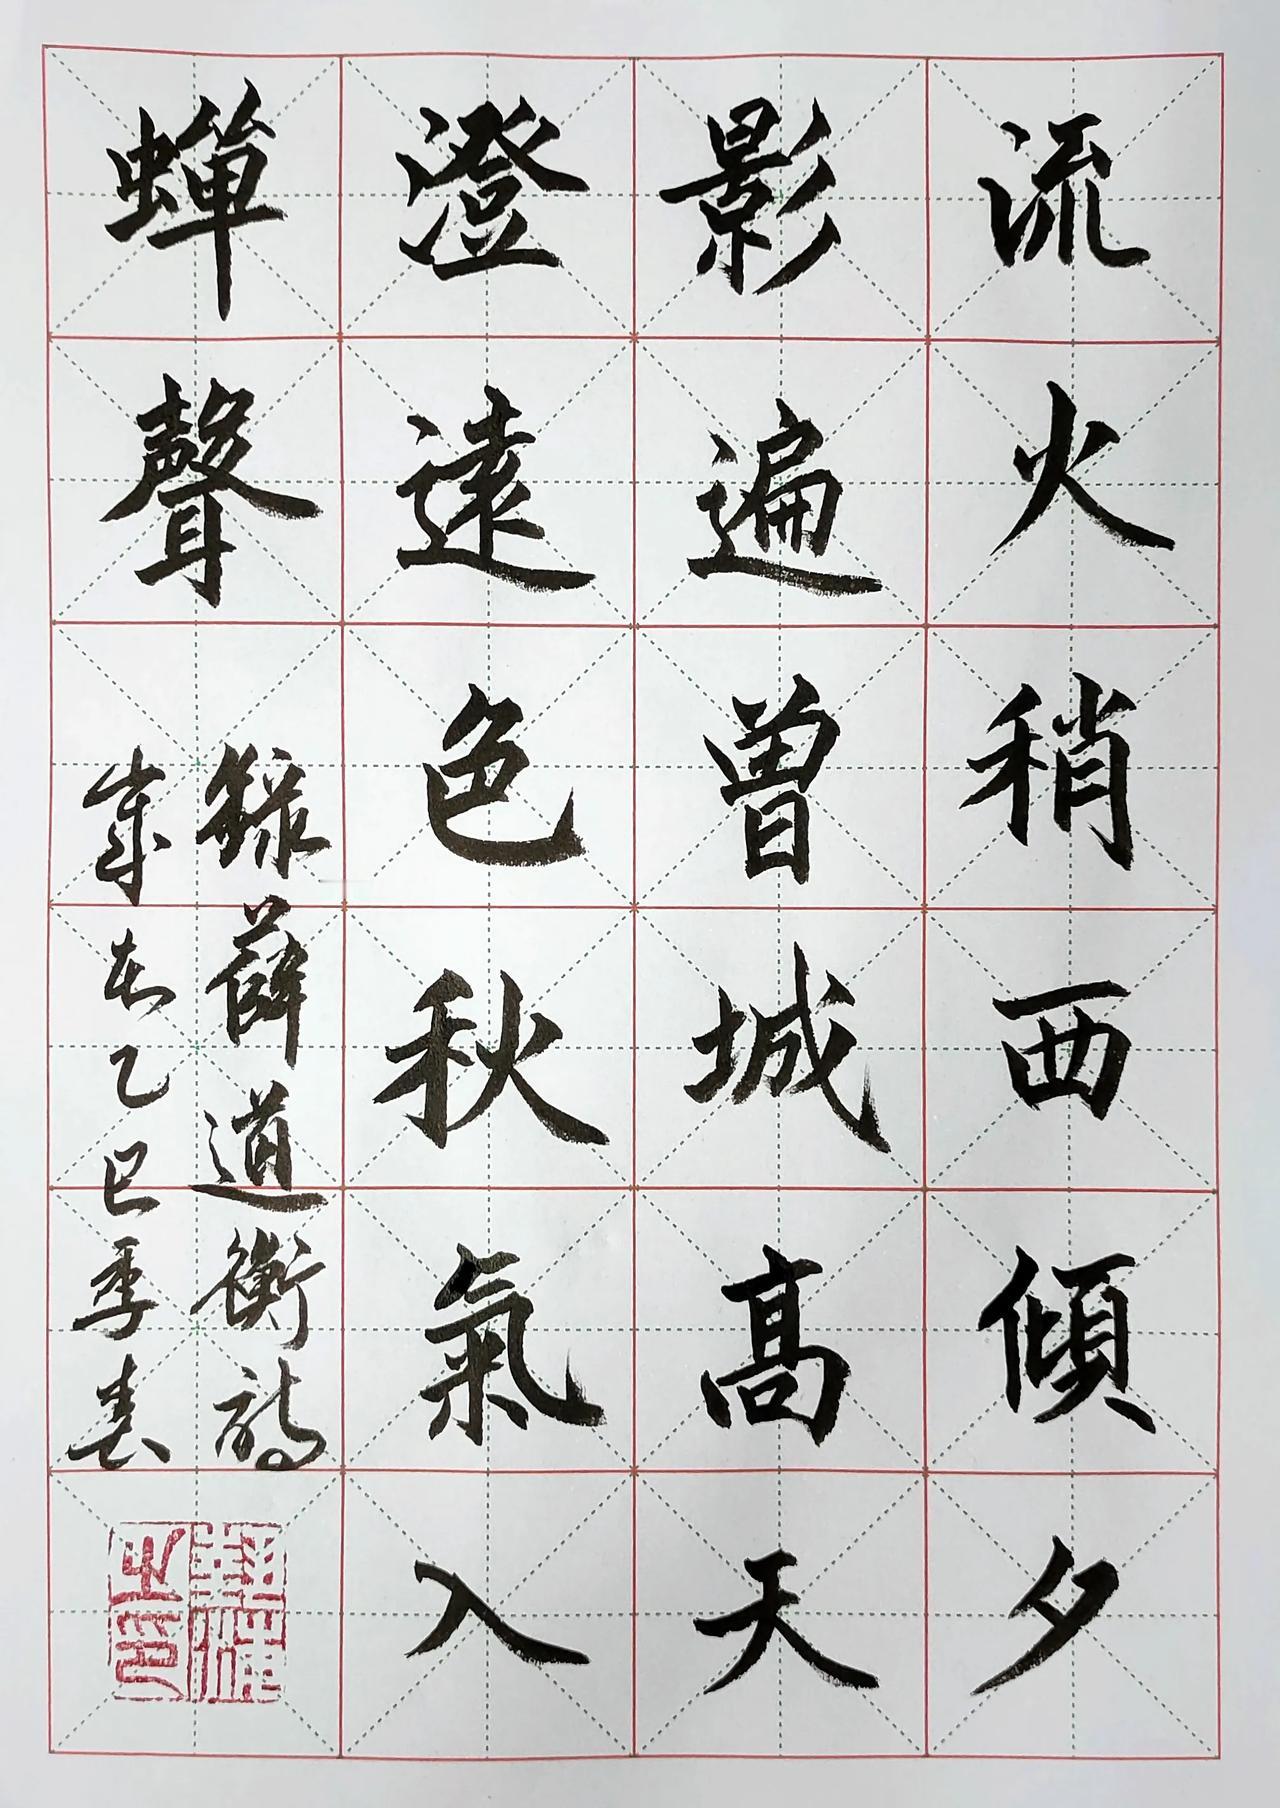 流火稍西傾夕
影遍曽城高天
澄遠色秋氣入
蟬聲
錄薛道衡詩
歲在乙巳季春
之印